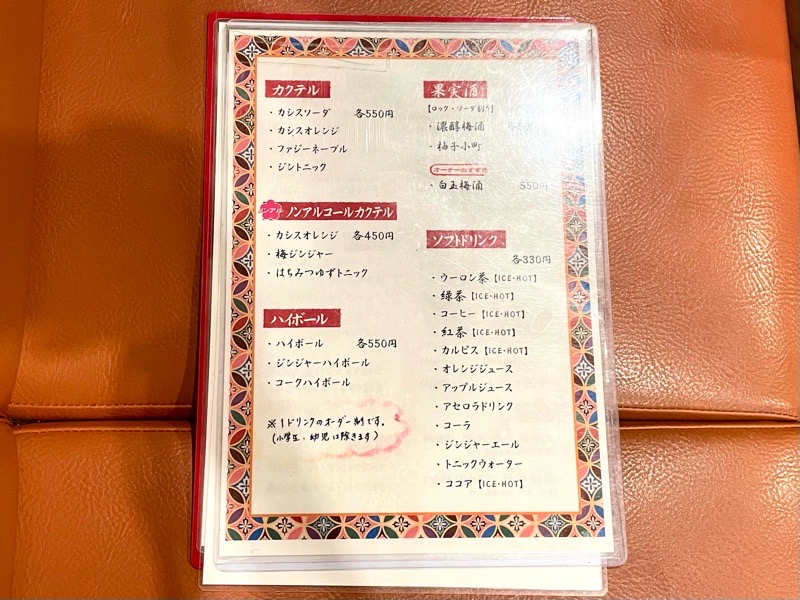 カクテル
・カシスソーダ 各550円
・カシスオレンジ
・ファジーネーブル
・ジントニック
ノンアル ノンアルコールカクテル
・カシスオレンジ 各450円
・梅ジンジャー
・はちみつゆずトニック
ハイボール
・ハイボール 各550円
・ジンジャーハイボール
・コークハイボール
※1ドリンクのオーダー制です。
(小学生・幼児は除きます)
果実酒
【ロック・ソーダ割り】
・濃醇梅酒
・柚子小町
オーナーおすすめ
・白玉梅酒 550円
ソフトドリンク
各330円
・ウーロン茶【ICE・HOT】
・緑茶【ICE・HOT】
・コーヒー【ICE・HOT】
・紅茶【ICE・HOT】
・カルピス【ICE・HOT】
・オレンジジュース
・アップルジュース
・アセロラドリンク
・コーラ
・ジンジャーエール
・トニックウォーター
・ココア【ICE・HOT】